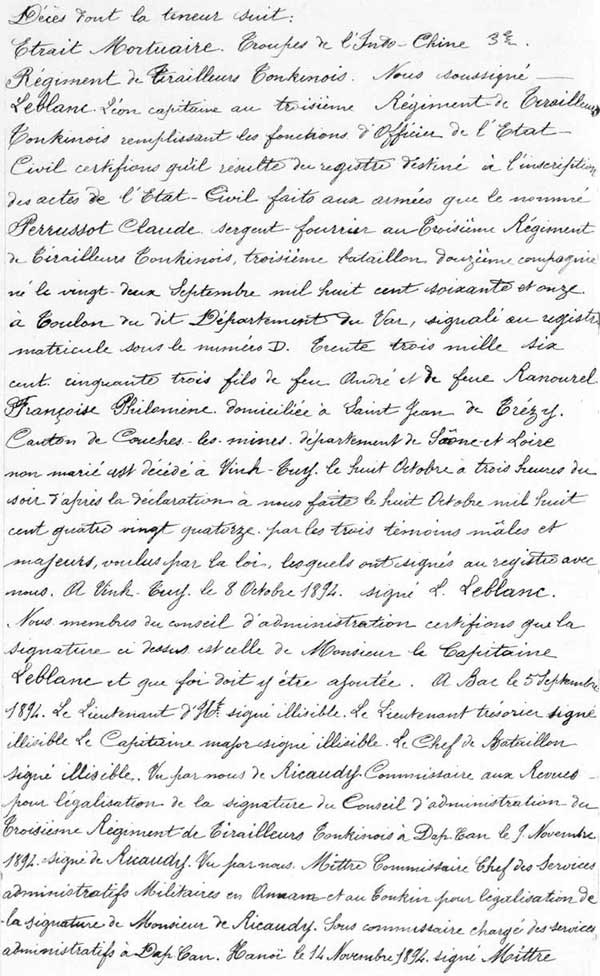 Décès dont la teneur suit:
Etrait Mortuaire. Troupes de l'Indo-Chine 3e.
Régiment de Tirailleurs Tonkinois. Nous soussigné —
Leblanc Léon capitaine au troisième Régiment de Tirailleurs
Tonkinois remplissant les fonctions d'Officier de l'Etat-
Civil certifions qu'il résulte du registre destiné à l'inscription
des actes de l'Etat-Civil faits aux armées que le nommé
Perrussot Claude sergent-fourrier au Troisième Régiment
de Tirailleurs Tonkinois, troisième bataillon douzième compagnie
né le vingt-deux Septembre mil huit cent soixante et onze
à Toulon du dit Département du Var, signalé au registre
matricule sous le numéro D. Trente trois mille six
cent cinquante trois fils de feu André et de feue Ranourel
Françoise Philomène domiciliée à Saint Jean de Trézy.
Canton de Couches-les-mines département de Saône-et-Loire
non marié est décédé à Vinh-Tuy le huit Octobre à trois heures du
soir d'après la déclaration à nous faite le huit Octobre mil huit
cent quatre vingt quatorze par les trois témoins mâles et
majeurs, voulus par la loi, lesquels ont signés au registre avec
nous. A Vinh-Tuy le 8 Octobre 1894. signé L. Leblanc.
Nous membres du conseil d'administration certifions que la
signature ci dessus est celle de Monsieur le Capitaine
Leblanc et que foi doit y être ajoutée. A Bac le 5 Septembre
1894. Le Lieutenant d'Ht signé illisible. Le Lieutenant trésorier signé
illisible Le Capitaine major signé illisible. Le Chef de Bataillon
signé illisible. Vu par nous de Ricaudy Commissaire aux Revues
pour légalisation de la signature du Conseil d'administration du
Troisième Régiment de Tirailleurs Tonkinois à Dap Cau le 9 Novembre
1894. signé de Ricaudy. Vu par nous Mittre Commissaire Chef des Services
administratifs Militaires en Annam et au Tonkin pour légalisation de
la signature de Monsieur de Ricaudy. Sous commissaire chargé des services
administratifs à Dap Cau. Hanoï le 14 Novembre 1894. signé Mittre